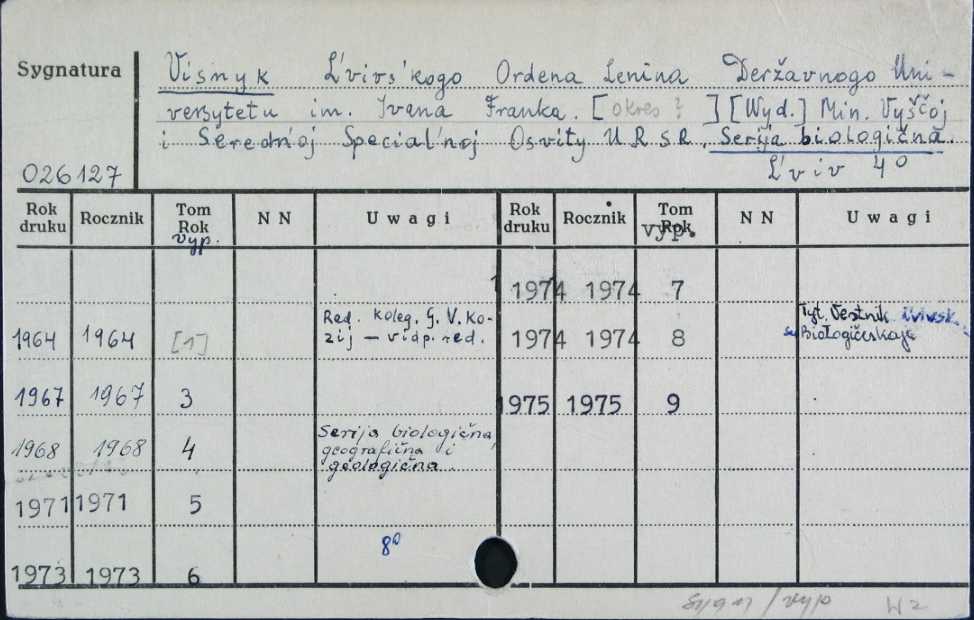 Sygnatura
026127
Visnyk L'vivs'kogo Ordena Lenina Deržavnogo Uni-
versytetu im. Ivana Franka. [okres ?] [Wyd.] Min. Vyščoj
i Serednʹoj Specialʹnoj Osvity URSR. Serija biologična.
L'viv 4°
Rok druku Rocznik Tom Rok vyp. N N Uwagi Rok druku Rocznik Tom Rok vyp. N N Uwagi
1974 1974 7
1964 1964 [1] Red. koleg. G. V. Ko-
zij – vidp. red.
1974 1974 8 Tyt. Vestnik
Biologičeskaja
1967 1967 3
1975 1975 9
1968 1968 4 Serija biologična,
geografična i
geologična
1971 1971 5
8°
1973 1973 6